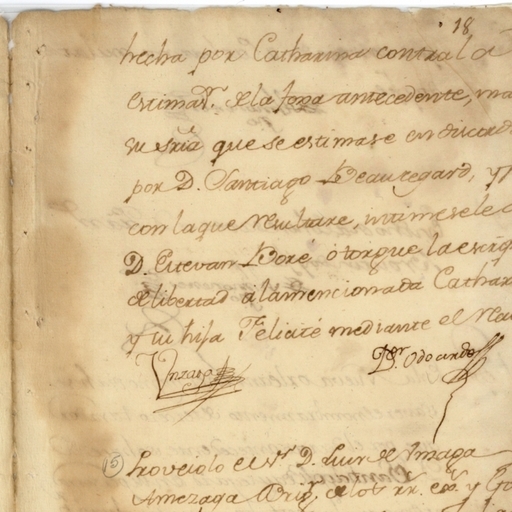 18
hecha por Catharina contra la
estimaⁿ. de la foxa antecedente, ma
su sría que se estimase en discord
por D. Santiago Beauregard, y
con la que resultare, intimesele
D. Estevan Bore, otorgue la escrip
de libertad a la mencionada Cathar
y su hija Felicité mediante el
Unzaga Dr. Odoardo
15 Proveiolo el Sr. D. Luis de Unzaga
Amezaga Brigr. de los rs. exs. y